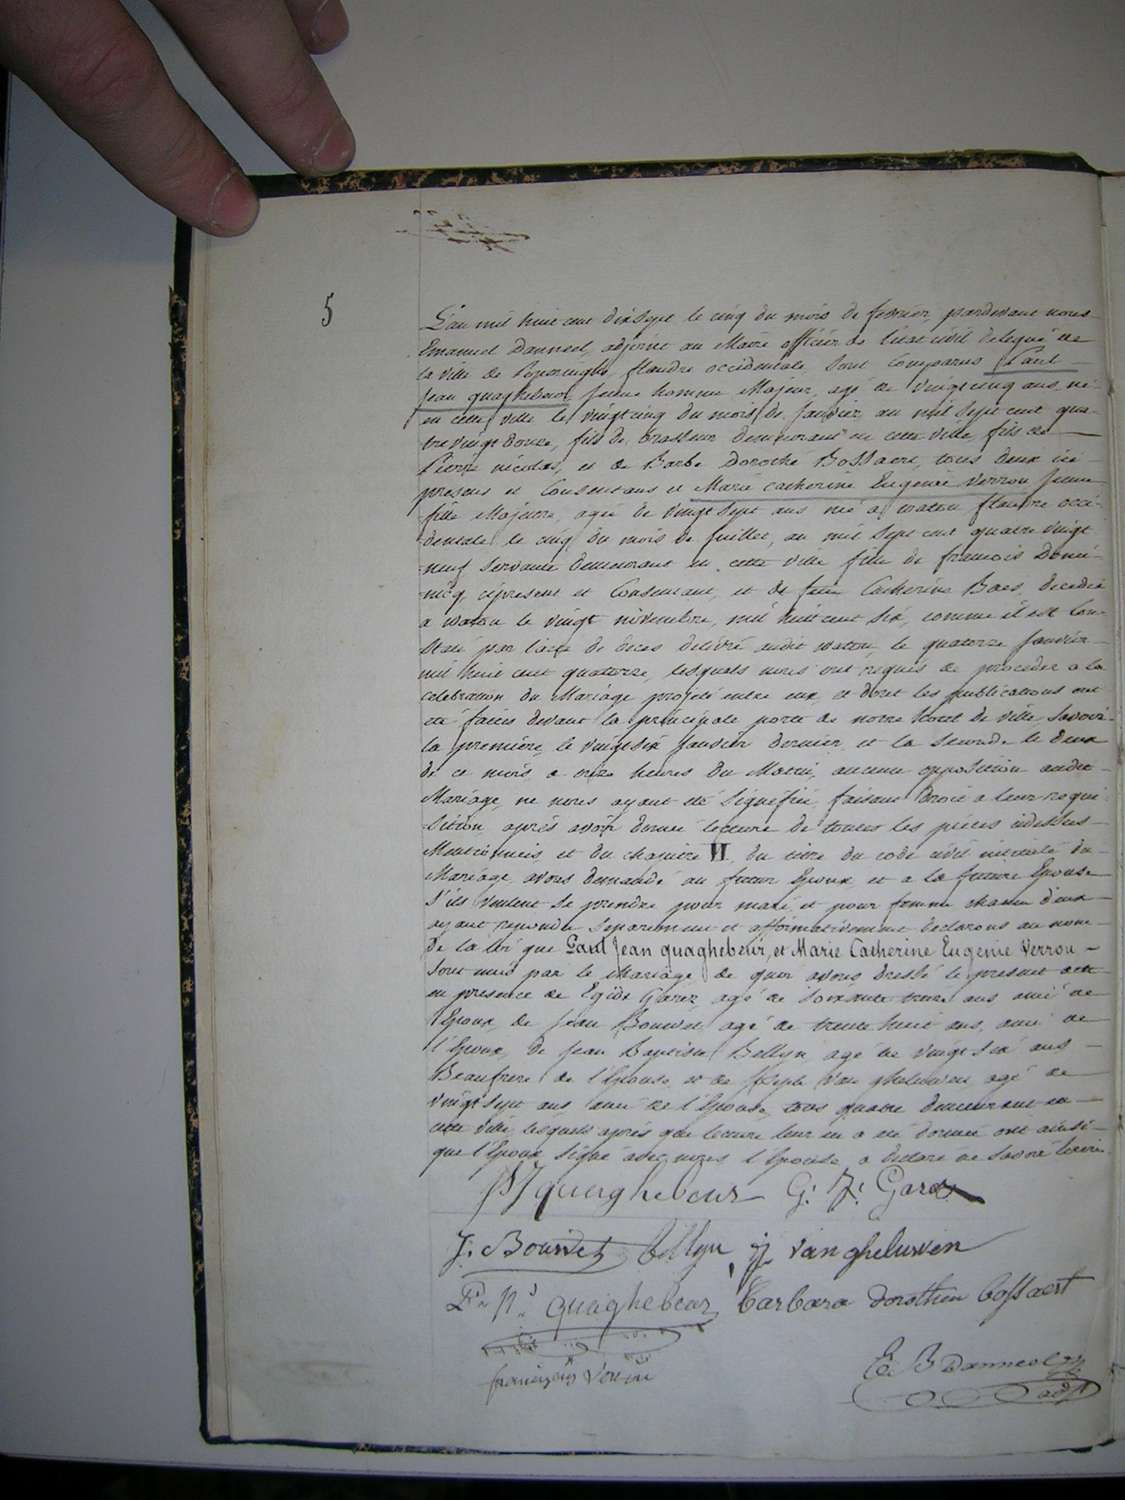 5
L'an mil huit cent dixsept le cinq du mois de fevrier, pardevant nous
Emanuel Danneel, adjoint au Maire officier de l'état civil delegué de
la ville de Poperinghe, flandre occidentale, sont comparus Paul
Jean quaghebeur jeune homme Majeur, agé de vingt cinq ans, né
en cette ville le vingt cinq du mois de janvier an mil sept cent qua-
tre vingt douze, fils de brasseur demeurant en cette ville, fils de
Pierre nicolas, et de Barbe Dorothé Bossaert, tous deux ici
presens et Consentans et Marie Catherine Eugenie Verrou jeune
fille Majeure, agée de vingt sept ans née a watou flandre occi-
dentale le cinq du mois de juillet, an mil sept cent quatre vingt
neuf servante demeurant en cette ville fille de francois Domi-
nicq, ci present et Consentant, et de feue Catherine Baes, decedée
a watou le vingt novembre, mil huit cent six, comme il est Con-
staté par l'acte de deces delivré audit watou, le quatorze Janvier
mil huit cent quatorze, lesquels nous ont requis de proceder a la
celebration du Mariage projeté entre eux, et dont les publications ont
été faites devant la principale porte de notre hotel de ville, Savoir
la premiere, le vingt six Janvier dernier, et la seconde le deux
de ce mois a onze heures du Matin, aucune opposition audit
Mariage, ne nous ayant été signifiée, faisant droit a leur requi-
sition, après avoir donné lecture de toutes les pièces cidessus
Mentionnées, et du chapitre VI, du titre du code civil intitulé du
Mariage, avons demandé au futur Epoux, et a la future Epouse
s'ils veulent se prendre pour mari et pour femme chacun d'eux
ayant repondu separement et affirmativement declarons au nom
De la loi que Paul Jean quaghebeur, et Marie Catherine Eugenie Verrou
sont unis par le Mariage de quoi avons dressé le present acte
en presence de Egide Garez, agé de soixante treize ans ami de
l'Epoux, de Jean Bouwet, agé de trente huit ans, ami de
l'Epoux, de Jean Baptiste Bellyn, agé de vingt six ans
Beaufrere de l'Epouse, et de Van ghelouwen agé de
vingt sept ans ami de l'Epouse, tous quatre demeurant en
cette ville, lesquels après que lecture leur en a été donnée ont ainsi
que l'Epoux signé avec nous l'Epouse, a declaré ne savoir écrire
PJ quaghebeur G: J: Garez
J: Bouwet Bellyn J vanghelurven
Pr Ns quaghebeur Barbara dorothea bossaert
francijscus Verrou
E. B Danneel
adjt